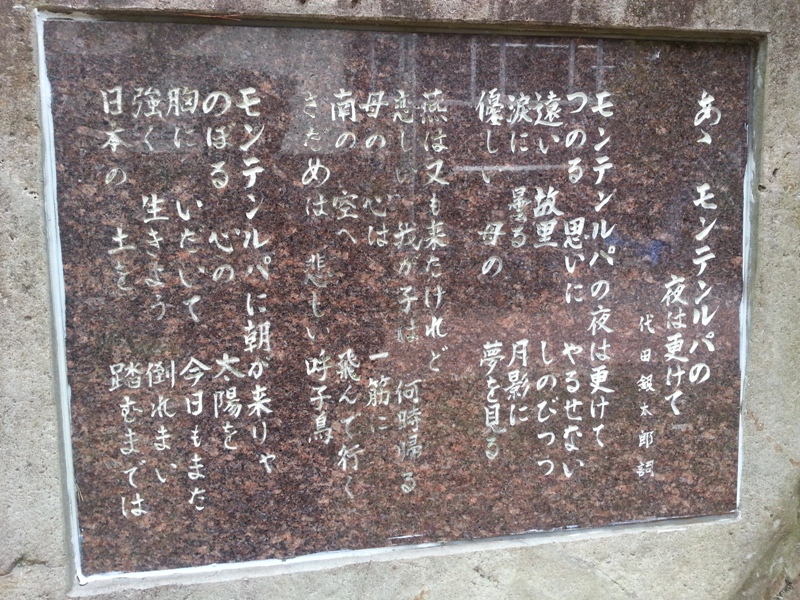 あゝ モンテンルパの
夜は更けて
代田銀太郎 詞
モンテンルパの夜は更けて
つのる 思いに やるせない
遠い 故里 しのびつつ
涙に 曇る 月影に
優しい 母の 夢を見る
燕は又も来たけれど
恋しい 我が子は 何時帰る
母の 心は 一筋に
南の 空へ 飛んで行く
さだめは 悲しい 呼子鳥
モンテンルパに朝が来りゃ
のぼる 心の 太陽を
胸に いだいて 今日もまた
強く 生きよう 倒れまい
日本の 土を 踏むまでは